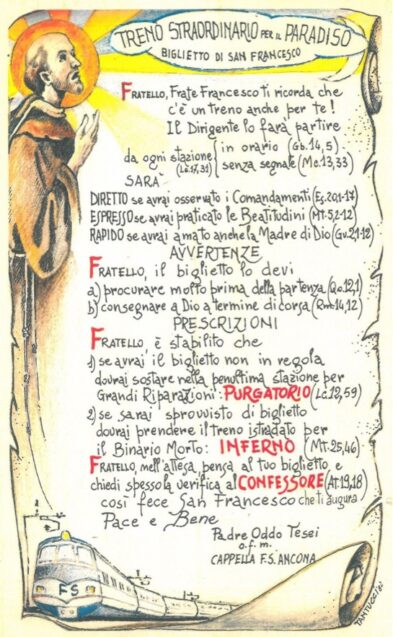 TRENO STRAORDINARIO PER IL PARADISO
BIGLIETTO DI SAN FRANCESCO
FRATELLO, Frate Francesco ti ricorda che
c'è un treno anche per te!
Il Dirigente lo farà partire
da ogni stazione in orario (Gb. 14,5)
(Lc. 17,31) senza segnale (Mc. 13,33)
SARÀ
DIRETTO se avrai osservato i Comandamenti (Es. 20,1-17)
ESPRESSO se avrai praticato le Beatitudini (Mt. 5,2-12)
RAPIDO se avrai amato anche la Madre di Dio (Gv. 2,1-12)
AVVERTENZE
FRATELLO, il biglietto lo devi
a) procurare molto prima della partenza (Qo. 12,1)
b) consegnare a Dio a termine di corsa (Rm. 14,12)
PRESCRIZIONI
FRATELLO, è stabilito che
1) se avrai il biglietto non in regola
dovrai sostare nella penultima stazione per
Grandi Riparazioni: PURGATORIO (Lc. 12,59)
2) se sarai sprovvisto di biglietto
dovrai prendere il treno istradato per
il Binario Morto: INFERNO (Mt. 25,46)
FRATELLO, nell'attesa pensa al tuo biglietto e
chiedi spesso la verifica al CONFESSORE (At. 19,18)
così fece San Francesco che ti augura
Pace e Bene
Padre Oddo Tesei
o.f.m.
CAPPELLA F.S. ANCONA
FS
TANTUCCINI